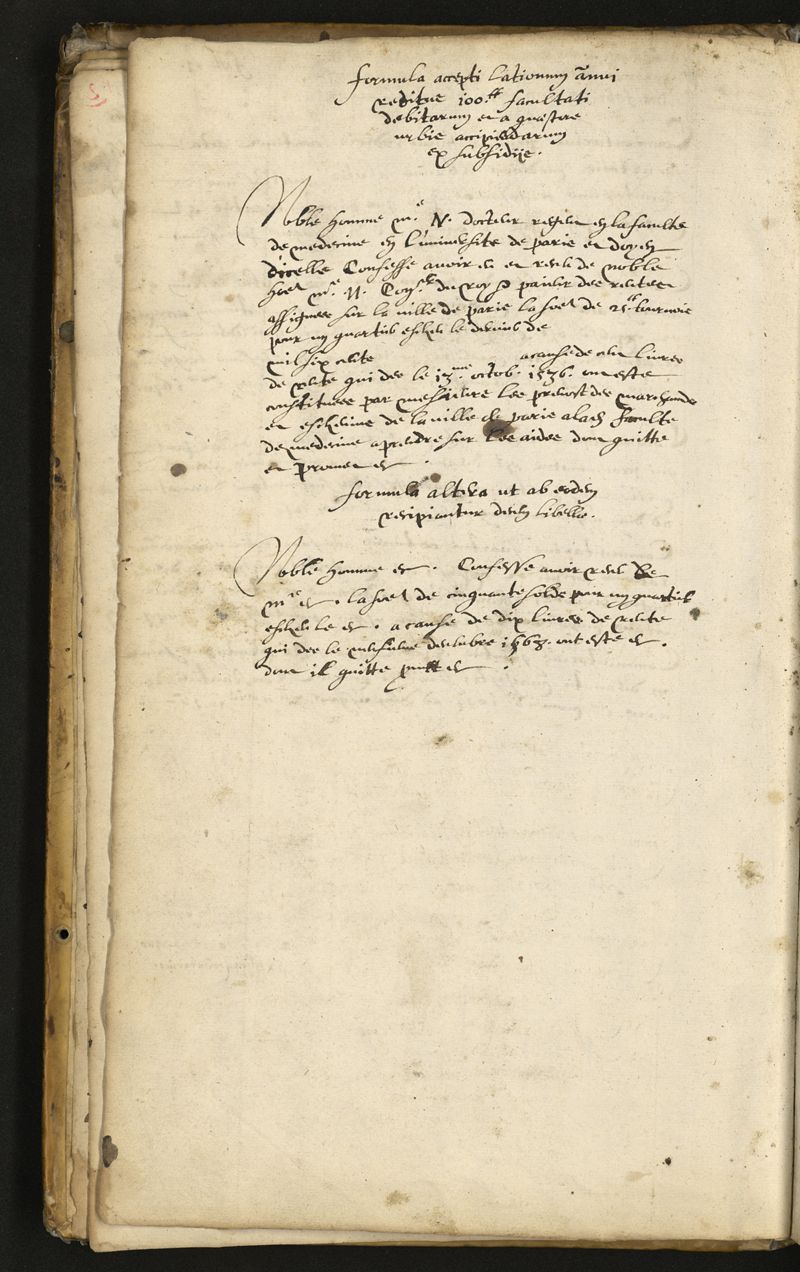 formula accepti lationum annui
reditus 100.ᵗᵗ facultati
debitarum et a quaestore
urbis accipiendarum
ex subsidijs.
Noble homme mᵉ. N. docteur regent en la faculte
de medecine en l'universite de paris et doyen
dicelle Confesse avoir eu et receu de noble
hoe mᵉ. N. Conˢᵉʳ du roy paieur des rentes
assignees sur la ville de paris la soe de 25.ᵗᵗ tournois
pour ung quartier escheu le dernier de
mil six cents a cause de cent livres
de rente qui des le octob. 1536. ont este
constituees par messieurs les prevost des marchands
et eschevins de la ville de paris a lad faculte
de medecine a prendre sur les aides dont quitte
et promet et
formula altera ut ab eodem
recipiantur decem libellae.
Noble homme et. Confesse avoir receu De
mᵉ et. la soe de cinquante solds pour ung quartier
escheu le et. a cause de dix livres de rente
qui des le decembre 1563. ont este et.
dont il quitte et.